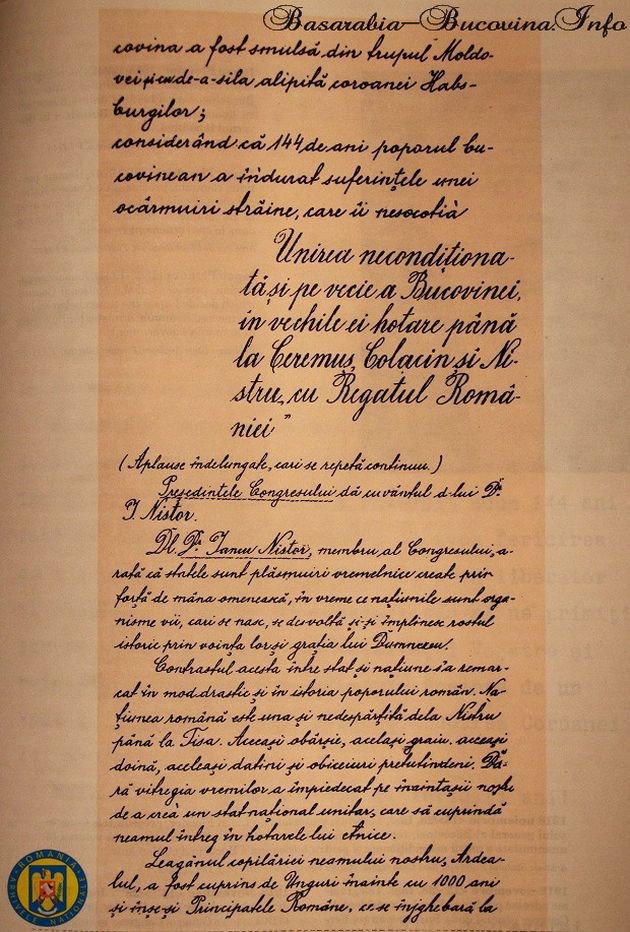 Basarabia-Bucovina.Info
covina a fost smulsă din trupul Moldo-
vei și cu de-a-sila alipită coroanei Habs-
burgilor;
considerând că 144 de ani poporul bu-
covinean a îndurat suferințele unei
ocârmuiri străine, care îi nesocotià
Unirea necondiționa-
tă și pe vecie a Bucovinei,
în vechile ei hotare până
la Ceremuș, Colacin și Ni-
stru, cu Regatul Româ-
niei"
(Aplause îndelungate, cari se repetă continuu.)
Președintele Congresului dă cuvântul d-lui Dr
I. Nistor.
Dl. Dr. Iancu Nistor, membru al Congresului, a-
rată că statele sunt plăsmuiri vremelnice create prin
forță de mâna omenească, în vreme ce națiunile sunt orga-
nisme vii, cari se nasc, se desvoltă și-și împlinesc rostul
istoric prin voința lor și grația lui Dumnezeu.
Contrastul acesta între stat și națiune s'a remar-
cat în mod drastic și în istoria poporului român. Na-
țiunea română este una și nedespărțită dela Nistru
până la Tisa. Aceeași obârșie, același graiu, aceeași
doină, aceleași datini și obiceiuri pretutindeni. Da-
ră vitregia vremilor a împiedecat pe înaintașii noștri
de a creà un stat național unitar, care să cuprindă
neamul întreg în hotarele lui etnice.
Leagănul copilăriei neamului nostru, Ardea-
lul, a fost cuprins de Unguri înainte cu 1000 ani
și înse-și Principatele Române, ce se înjghebară la
ROMANIA
ARHIVELE NATIONALE